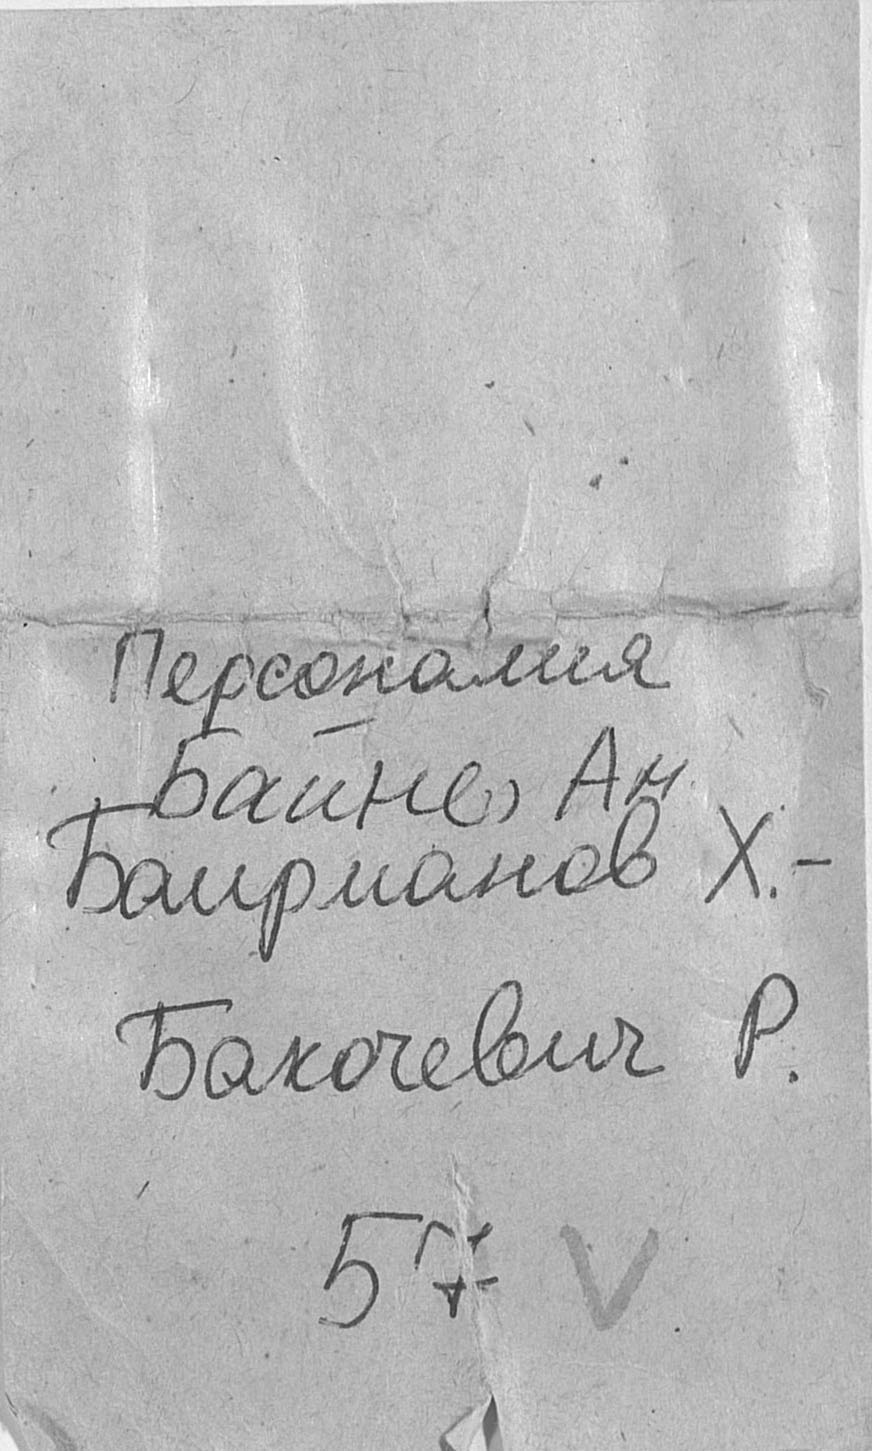 Персоналия
Байне, Ан
Баирманов Х.-
Бакочевич Р.
57 V